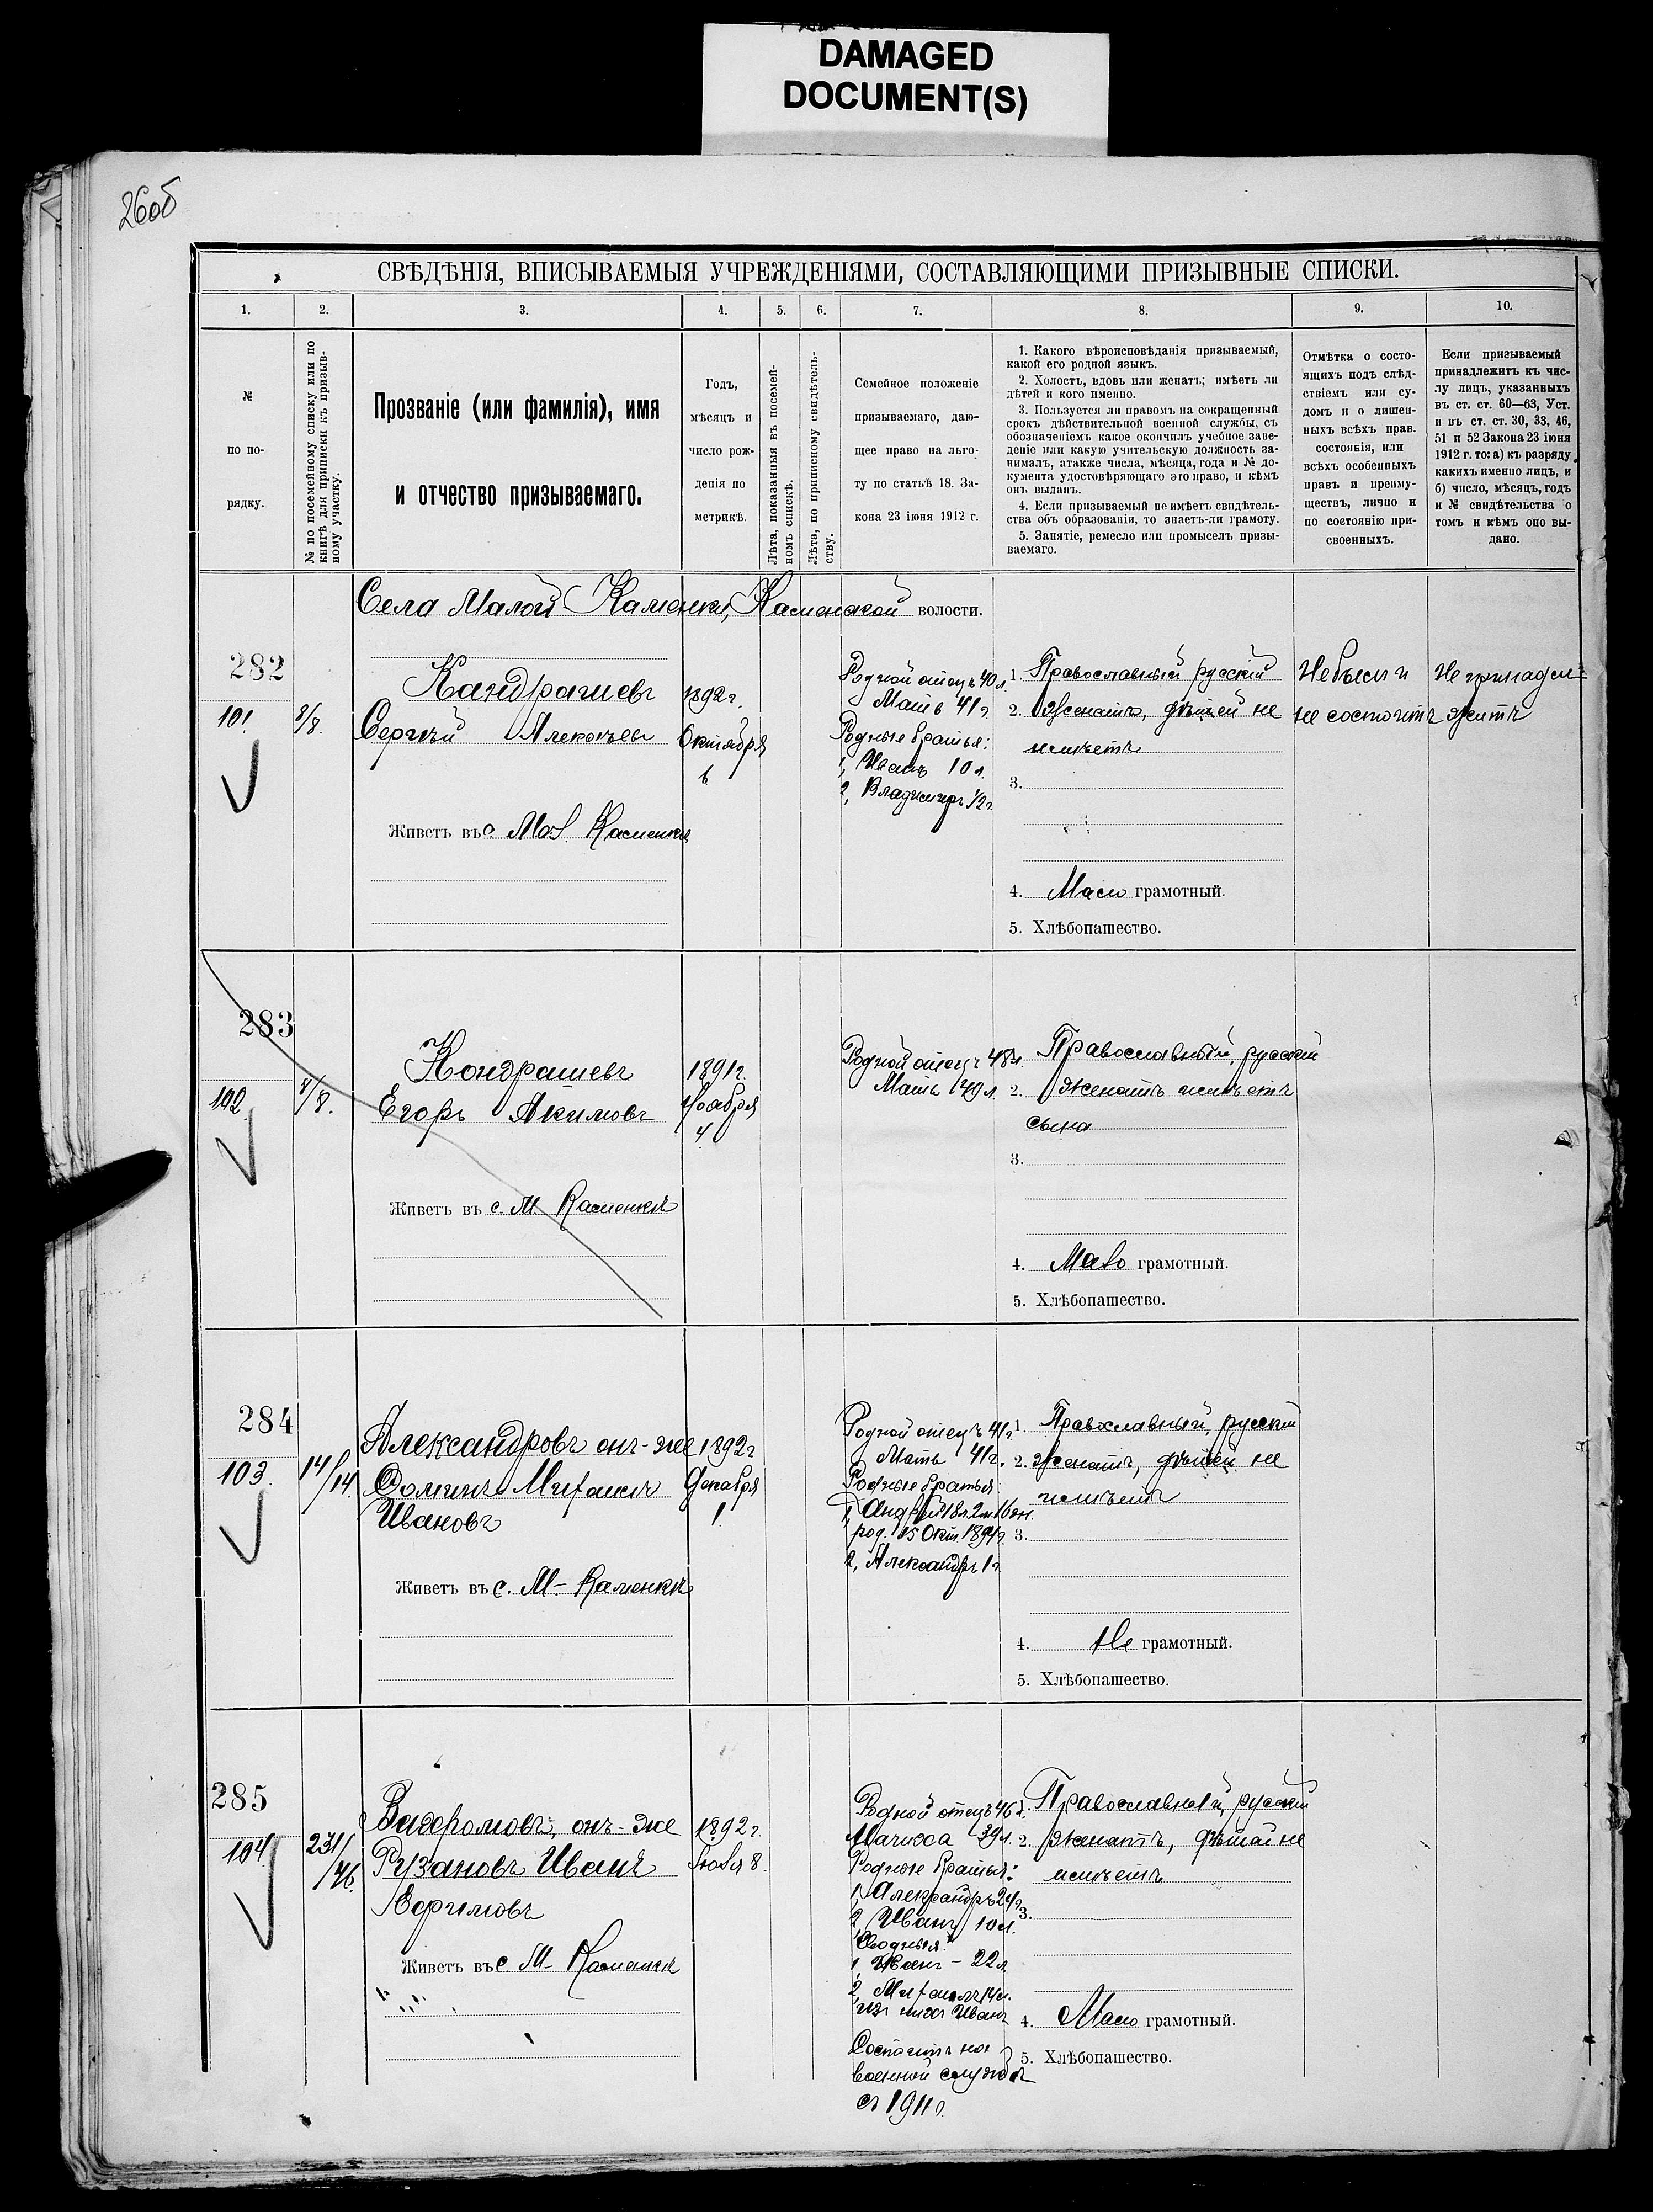 DAMAGED
DOCUMENT(S)
26об
СВѢДѢНІЯ, ВПИСЫВАЕМЫЯ УЧРЕЖДЕНІЯМИ, СОСТАВЛЯЮЩИМИ ПРИЗЫВНЫЕ СПИСКИ.
1. 2. 3. 4. 5. 6. 7. 8. 9. 10.
№
по по-
рядку.
№ по посемейному списку или по
книгѣ для приписки къ призыв-
ному участку.
Прозваніе (или фамилія), имя
и отчество призываемаго.
Годъ,
мѣсяцъ и
число рож-
денія по
метрикѣ.
Лѣта, показанныя въ посемей-
номъ спискѣ.
Лѣта, по приписному свидѣтель-
ству.
Семейное положеніе
призываемаго, даю-
щее право на льго-
ту по статьѣ 18. За-
кона 23 іюня 1912 г.
1. Какого вѣроисповѣданія призываемый,
какой его родной языкъ.
2. Холостъ, вдовъ или женатъ; имѣетъ ли
дѣтей и кого именно.
3. Пользуется ли правомъ на сокращенный
срокъ дѣйствительной военной службы, съ
обозначеніемъ какое окончилъ учебное заве-
деніе или какую учительскую должность за-
нималъ, атакже числа, мѣсяца, года и № до-
кумента удостовѣряющаго это право, и кѣмъ
онъ выданъ.
4. Если призываемый не имѣетъ свидѣтель-
ства объ образованіи, то знаетъ-ли грамоту.
5. Занятіе, ремесло или промыселъ призы-
ваемаго.
Отмѣтка о состо-
ящихъ подъ слѣд-
ствіемъ или су-
домъ и о лишен-
ныхъ всѣхъ прав.
состоянія, или
всѣхъ особенныхъ
правъ и преиму-
ществъ, лично и
по состоянію при-
своенныхъ.
Если призываемый
принадлежитъ къ чис-
лу лицъ, указанныхъ
въ ст. ст. 60—63, Уст.
и въ ст. ст. 30, 33, 46,
51 и 52 Закона 23 іюня
1912 г. то: а) къ разряду
какихъ именно лицъ, и
б) число, мѣсяцъ, годъ
и № свидѣтельства о
томъ и кѣмъ оно вы-
дано.
Села Малой Каменки, Каменской волости.
282
101.
8/8.
Кандрашевъ
Сергѣй Алексѣевъ
Живетъ въ с. Мал. Каменкѣ
1892 г.
Октября
Родной отецъ 40 л.
Мать 41 г.
Родные братья:
1, Иванъ 10 л.
2, Владимеръ 1/2 г.
1. Православный русскій
2. Женатъ, дѣтей не
имѣетъ
3.
4. Мало грамотный.
5. Хлѣбопашество.
Не былъ и
не состоитъ
Не принадле-
житъ
283
102
8/8.
Кондрашевъ
Егоръ Акимовъ
Живетъ въ с. М. Каменкѣ
1891 г.
Ноября
4
Родной отецъ 48 л.
Мать 49 л.
Православный, русскій
2. Женатъ имѣетъ
сына
3.
4. Мало грамотный.
5. Хлѣбопашество.
284
103.
14/14.
Александровъ онъ-же
Фоминъ Михаилъ
Ивановъ
Живетъ въ с. М- Каменкѣ
1892 г
Декабря
1.
Родной отецъ 41 г.
Мать 41 г.
Родные братья
1, Андрей 18 л. 2 м. 16 дн.
род. 15 Окт. 1894 г.
2, Александръ 1 г.
1. Православный, русскій
2. Женатъ, дѣтей не
имѣетъ
3.
4. Не грамотный.
5. Хлѣбопашество.
285
104.
231/46.
онъ-же
Рузановъ Иванъ
Ефимовъ
Живетъ въ с. М- Каменкѣ
1892 г.
8.
Родной отецъ 46 л.
Мачиха 39 л.
Родные братья:
1, Александръ 24 г.
2, Иванъ 10 л.
Сводныя:
1, Иванъ - 22 л.
2, Михаилъ 14 л.
изъ нихъ Иванъ
Состоитъ на
военной службѣ
съ 1911 г.
1. Православный, русскій
2. Женатъ, дѣтей не
имѣетъ
3.
4. Мало грамотный.
5. Хлѣбопашество.